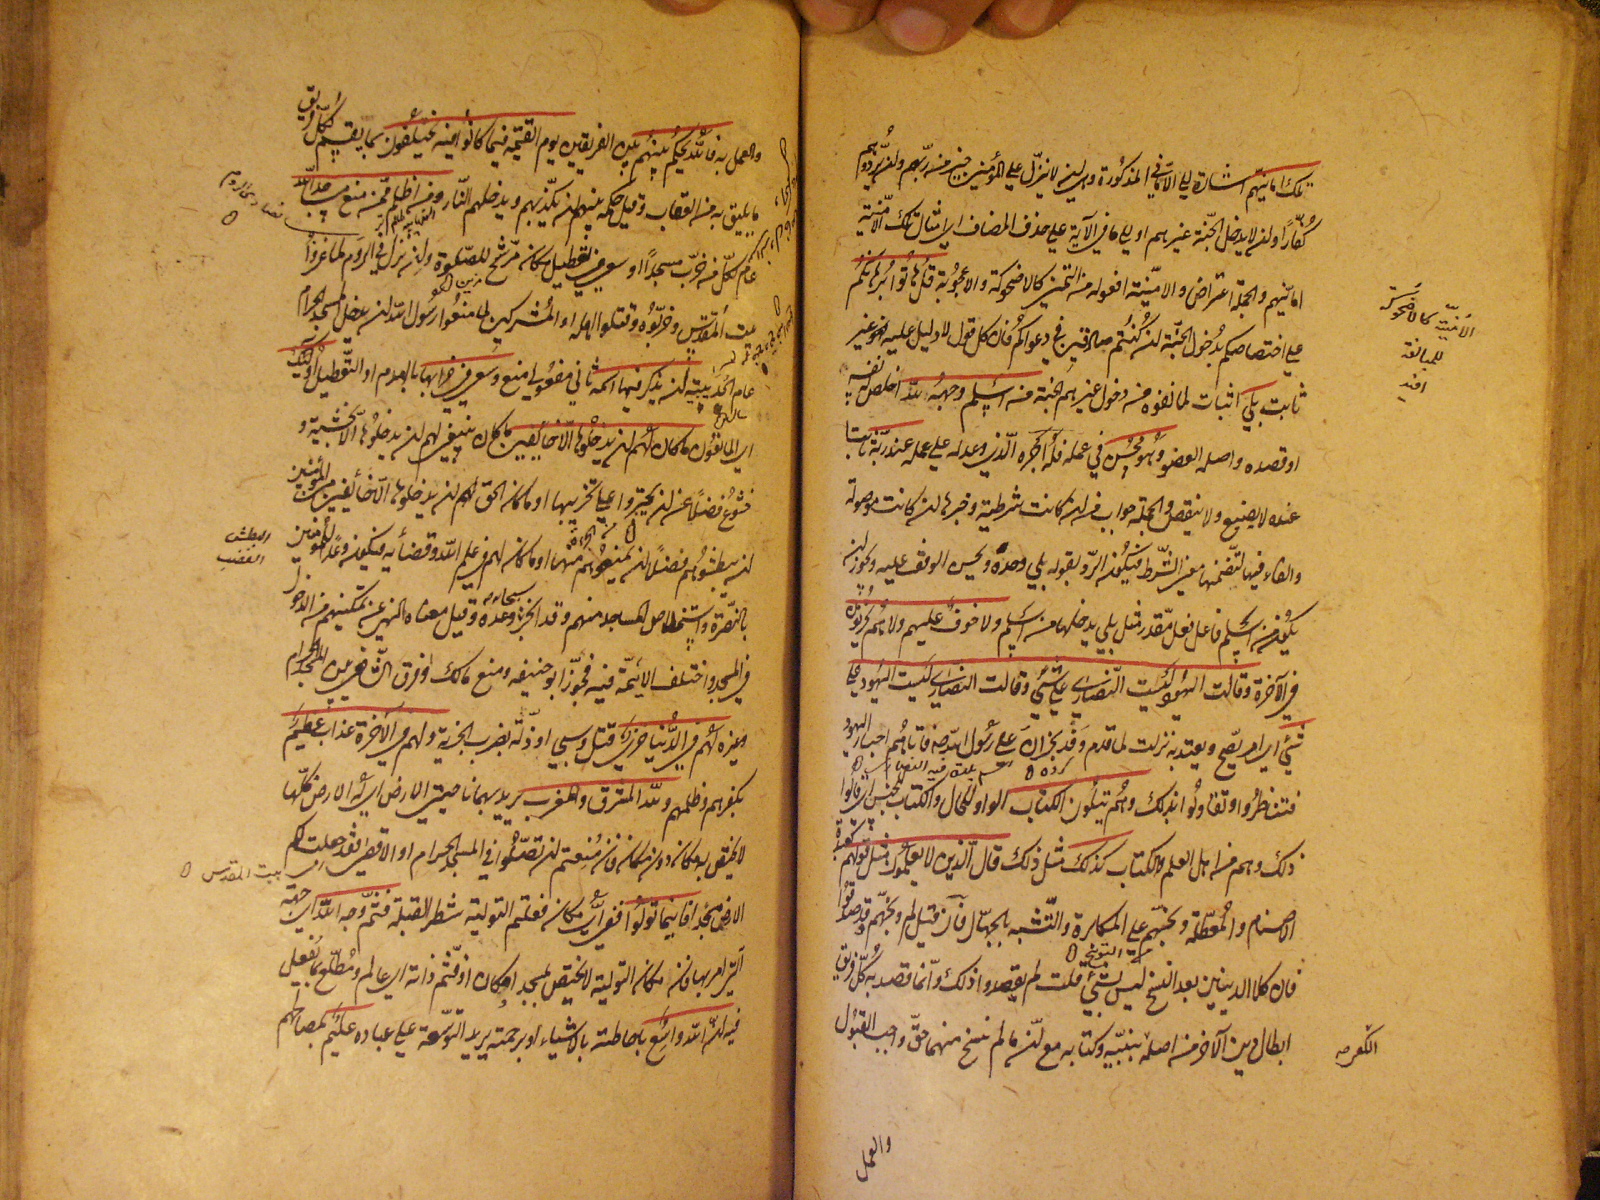 تلك امانيّهم اشارة الي الامانيّ المذكورة وهي ان لا ينزّل علي المؤمنين خير من ربّهم وان يردّوهم
كُفّاراً وان لا يدخل الجنّة غيرهم او الي ما في الآية علي حذف المضاف اي امثال تلك الامنيّة
امانيّهم والجملة اعتراض والامنيّة افعولة من التمني كالاضحوكة والاعجوبة قل هاتوا برهانكم
علي اختصاصكم بدخول الجنّة ان كنتم صادقين في دعواكم فان كل قول لا دليل عليه فهو غير
ثابت بلي اثبات لما نفوه من دخول غيرهم الجنة من اسلم وجهه لله اخلص له نفسه
او قصده واصله العضو وهو محسن في عمله فله اجره الّذي وعد له علي عمله عند ربّه ثابتا
عنده لا يضيع ولا ينقص والجملة جواب من ان كانت شرطية وخبرها ان كانت موصولة
والفاء فيها لتضمنها معني الشرط فيكون الردّ بقوله بلي وحده ويحسن الوقف عليه ويجوز ان
يكون من اسلم فاعل فعل مقدر مثل بلي يدخلها من اسلم ولا خوف عليهم ولا هم يحزنون
في الآخرة وقالت اليهود ليست النصاري علي شئ وقالت النصاري ليست اليهود علي
شئ اي امر يصح ويعتدّ به نزلت لما قدم وفد نجران علي رسول الله صه فاتاهم احبار اليهود
فتناظروا وتقاولوا بذلك وهم يتلون الكتاب الواو للحال والكتاب للجنس اي قالوا
ذلك وهم من اهل العلم والكتاب كذلك مثل ذلك قال الّذين لا يعلمون مثل قولهم كعبدة
الاصنام والمعطّلة وبّخهم علي المكابرة والتّشبه بالجهّال فان قيل لم وبّخهم وقد صدقوا
فان كلا الدينين بعد النسخ ليس بشئ قلت لم يقصدوا ذلك وانّما قصد به كلّ فريق
ابطال دين الآخر من اصله والكفر بنبيّه وكتابه مع ان ما لم ينسخ منهما حقّ واجب القبول
والعمل
الامنيّة كالاضحوكة
للمبالغة
والكفر صه
والعمل به فالله يحكم بينهم بين الفريقين يوم القيمة فيما كانوا فيه يختلفون بما يقسم لكلّ فريق
ما يليق به من العقاب وقيل حكمه بينهم ان يكذّبهم ويدخلهم النّار ومن اظلم ممّن منع مساجد الله
عام لكلّ من خرّب مسجداً او سعي في تعطيل مكان مرشّح للصلوة وان نزل في الروم لمّا غزوا
بيت المقدس وخرّبوه وقتلوا اهله او المشركين لما منعوا رسول الله ان يدخل المسجد الحرام
عام الحديبية ان يذكر فيها اسمه ثاني مفعولي منع وسعي في خرابها بالهدم او التّعطيل اولئك
اي المانعون ما كان لهم ان يدخلوها الّا خائفين ما كان ينبغي لهم ان يدخلوها الّا بخشية و
خشوع فضلاً عن ان يجترؤا علي تخريبها او ما كان الحق لهم ان يدخلوها الّا خائفين من المؤمنين
ان يبطشوا بهم فضلاً ان يمنعوهم منها او ما كان لهم في علم الله وقضائه فيكون وعداً للمؤمنين
بالنّصرة واستخلاص المساجد منهم وقد انجز وعده وقيل معناه النهي عن تمكينهم من الدخول
في المسجد واختلف الائمّة فيه فجوّز ابو حنيفة ومنع مالك وفرق الشافعي بين المسجد الحرام
وغيره لهم في الدّنيا خزي قتل وسبي او ذلّة بضرب الجزية ولهم في الآخرة عذاب عظيم
بكفرهم وظلمهم ولله المشرق والمغرب يريد بهما ناحيتي الارض اي له الارض كلّها
لا يختص به مكان دون مكان فان منعتم ان تصلّوا في المسجد الحرام او الاقصي فقد جعلت لكم
الارض مسجدا فاينما تولّوا ففي اي مكان فعلتم التولية شطر القبلة فثمّ وجه الله اي جهته
الّتي امر بها فان امكان التولية لا يختص بمسجد او مكان او فثمّ ذاته اي عالم ومطّلع بما يفعل
فيه ان الله واسع باحاطته بالاشياء او برحمته يريد التّوسعة علي عباده عليم بمصالحهم
البطش
الغضب
بيت المقدس